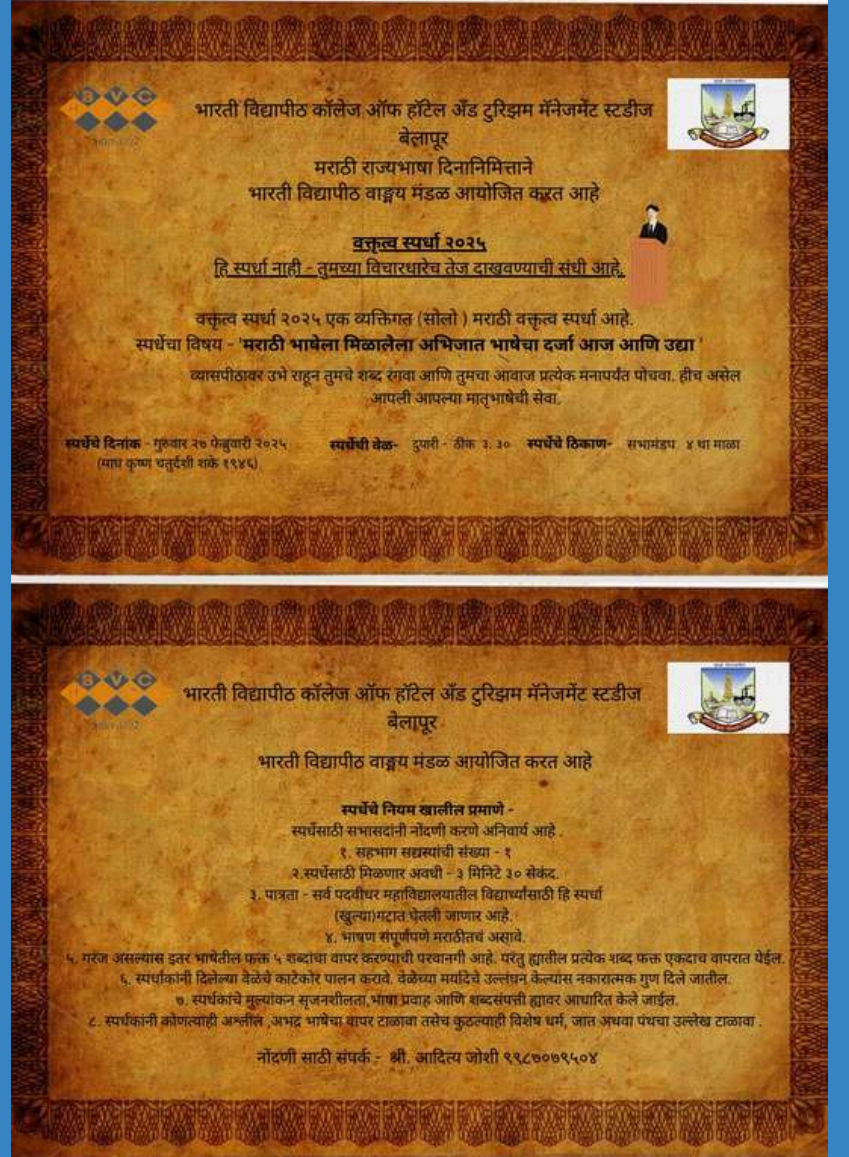 BVC
भारती विद्यापीठ कॉलेज ऑफ हॉटेल अँड टुरिझम मॅनेजमेंट स्टडीज
बेलापूर
मराठी राज्यभाषा दिनानिमित्ताने
भारती विद्यापीठ वाङ्मय मंडळ आयोजित करत आहे
वक्तृत्व स्पर्धा २०२५
हि स्पर्धा नाही - तुमच्या विचारधारेच तेज दाखवण्याची संधी आहे.
वक्तृत्व स्पर्धा २०२५ एक व्यक्तिगत (सोलो ) मराठी वक्तृत्व स्पर्धा आहे.
स्पर्धेचा विषय - 'मराठी भाषेला मिळालेला अभिजात भाषेचा दर्जा आज आणि उद्या '
व्यासपीठावर उभे राहून तुमचे शब्द रंगवा आणि तुमचा आवाज प्रत्येक मनापर्यंत पोचवा. हीच असेल
आपली आपल्या मातृभाषेची सेवा.
स्पर्धेचे दिनांक - गुरुवार २७ फेब्रुवारी २०२५ स्पर्धेची वेळ- दुपारी - ठीक ३. ३० स्पर्धेचे ठिकाण- सभामंडप ४ था माळा
(माघ कृष्ण चतुर्दशी शके १९४६)
BVC
भारती विद्यापीठ कॉलेज ऑफ हॉटेल अँड टुरिझम मॅनेजमेंट स्टडीज
बेलापूर
भारती विद्यापीठ वाङ्मय मंडळ आयोजित करत आहे
स्पर्धेचे नियम खालील प्रमाणे -
स्पर्धेसाठी सभासदांनी नोंदणी करणे अनिवार्य आहे .
१. सहभाग सद्यस्यांची संख्या - १
२.स्पर्धेसाठी मिळणार अवधी - ३ मिनिटे ३० सेकंद.
३. पात्रता - सर्व पदवीधर महाविद्यालयातील विद्यार्थ्यांसाठी हि स्पर्धा
(खुल्या)गटात घेतली जाणार आहे.
४. भाषण संपूर्णपणे मराठीतचं असावे.
५. गरज असल्यास इतर भाषेतील फक्त ५ शब्दांचा वापर करण्याची परवानगी आहे. परंतु ह्यातील प्रत्येक शब्द फक्त एकदाच वापरात येईल.
६. स्पर्धाकांनी दिलेल्या वेळेचे काटेकोर पालन करावे. वेळेच्या मर्यादेचे उल्लंघन केल्यास नकारात्मक गुण दिले जातील.
७. स्पर्धकांचे मुल्यांकन सृजनशीलता,भाषा प्रवाह आणि शब्दसंपत्ती ह्यावर आधारित केले जाईल.
८. स्पर्धकांनी कोणत्याही अश्लील ,अभद्र भाषेचा वापर टाळावा तसेच कुठल्याही विशेष धर्म, जात अथवा पंथचा उल्लेख टाळावा .
नोंदणी साठी संपर्क - श्री. आदित्य जोशी ९९८७०७९५०४